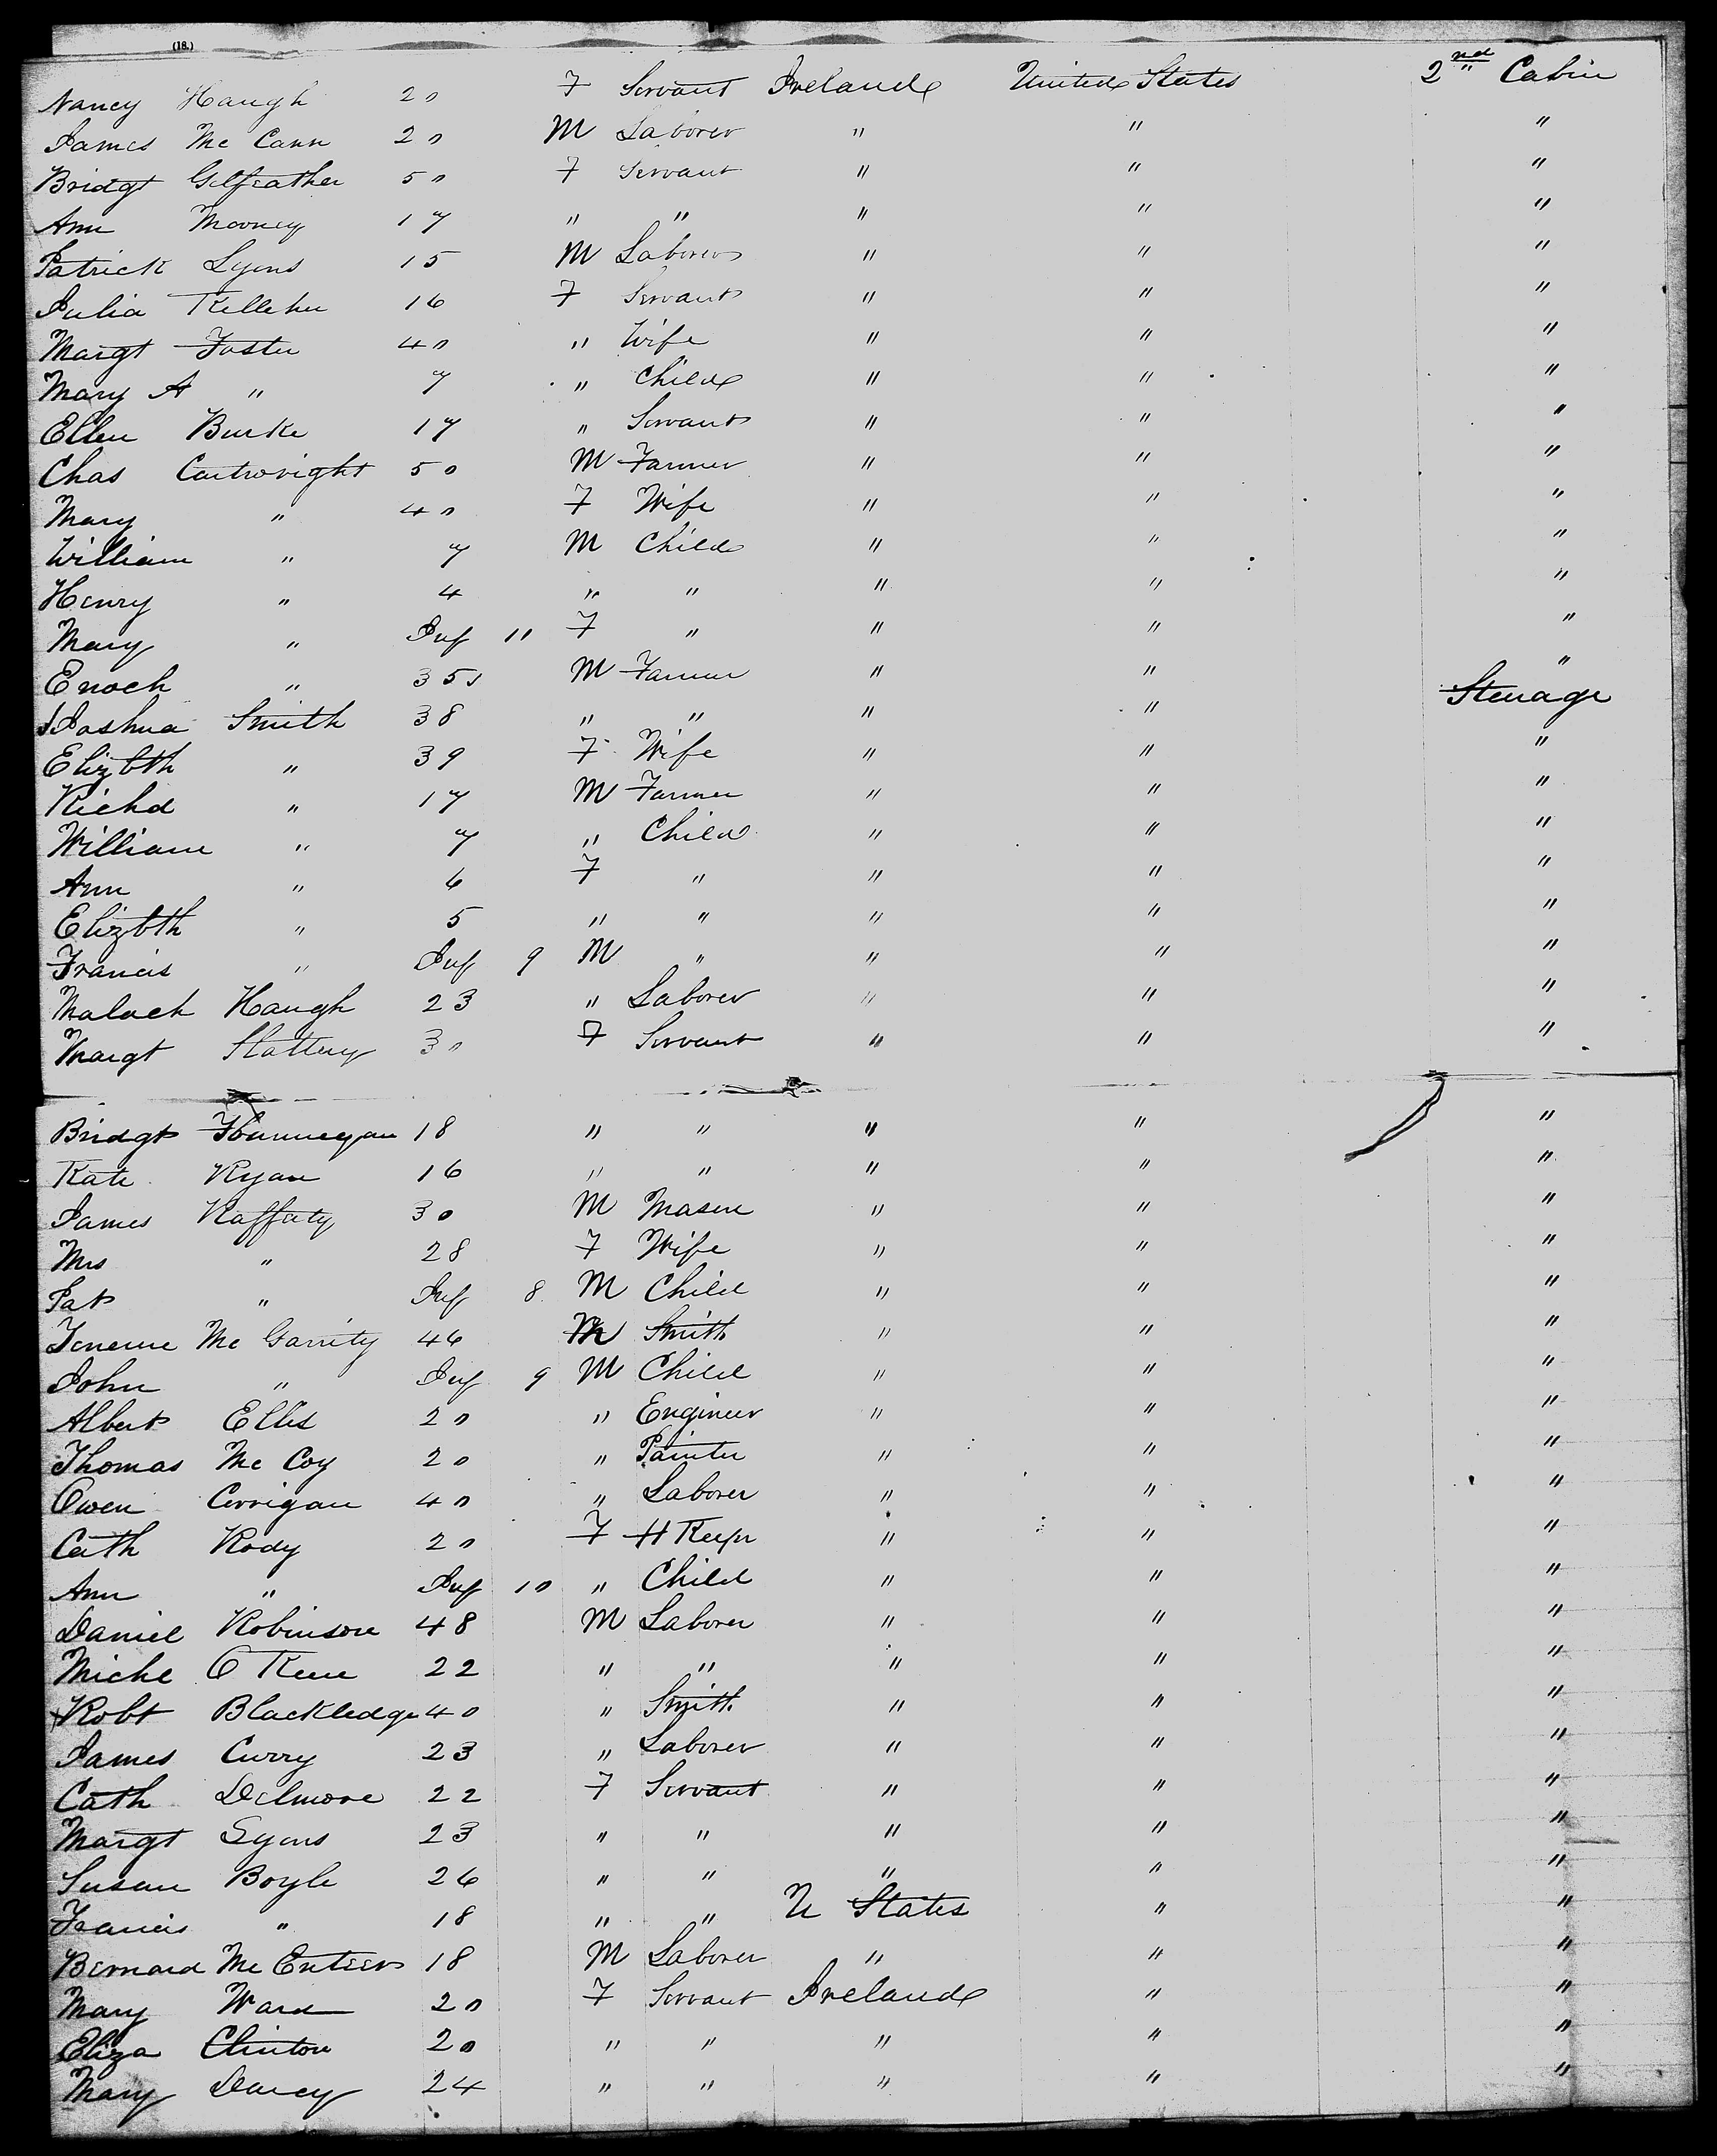 (18.)
Nancy Haugh 20 F Servant Ireland United States 2nd Cabin
James Mc Cann 20 M Laborer " " "
Bridgt Gilfeather 50 F Servant " " "
Ann Mooney 17 " " " " "
Patrick Lyons 15 M Laborer " " "
Julia Kelleher 16 F Servant " " "
Margt Foster 40 " Wife " " "
Mary A " 7 " Child " " "
Ellen Burke 17 " Servant " " "
Chas Cartwright 50 M Farmer " " "
Mary " 40 F Wife " " "
William " 7 M Child " " "
Henry " 4 " " " " "
Mary " Inf 11 F " " " "
Enoch " 35 M Farmer " " "
Joshua Smith 38 " " " " Steerage
Elizbth " 39 F Wife " " "
Richd " 17 M Farmer " " "
William " 7 " Child " " "
Ann " 6 F " " " "
Elizbth " 5 " " " " "
Francis " Inf 9 M " " " "
Malach Haugh 23 " Laborer " " "
Margt Slattery 30 F Servant " " "
Bridgt 18 " " " " "
Kate Ryan 16 " " " " "
James Raffaty 30 M Mason " " "
Mrs " 28 F Wife " " "
Pat " Inf 8 M Child " " "
Mc Garrity 46 M Smith " " "
John " Inf 9 M Child " " "
Albert Ellis 20 " Engineer " " "
Thomas Mc Coy 20 " Painter " " "
Owen Corrigan 40 " Laborer " " "
Cath Rody 20 F H Keepr " " "
Ann " Inf 10 " Child " " "
Daniel Robinson 48 M Laborer " " "
Michl O Keen 22 " " " " "
Robt Blackledge 40 " Smith " " "
James Curry 23 " Laborer " " "
Cath Delmore 22 F Servant " " "
Margt Lyons 23 " " " " "
Susan Boyle 26 " " " " "
Francis " 18 " " U States " "
Bernard Mc Enteer 18 M Laborer " " "
Mary Ward 20 F Servant Ireland " "
Eliza Clinton 20 " " " " "
Mary Darcy 24 " " " " "